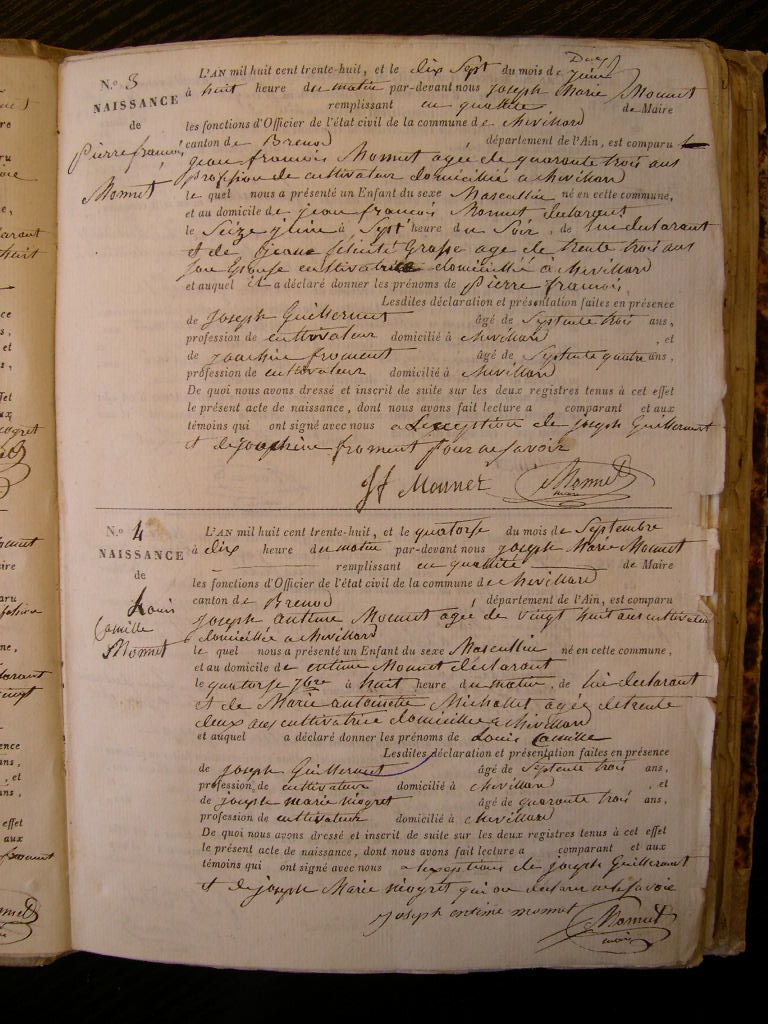 N.o 3
NAISSANCE
de
Pierre francois
Monnet
L'AN mil huit cent trente-huit, et le dix Sept du mois de juin
à huit heure du matin par-devant nous joseph Marie Monnet
remplissant en qualité de Maire
les fonctions d'Officier de l'état civil de la commune de chevillard
canton de Brenod, département de l'Ain, est comparu
jean francois Monnet agée de quaronte trois ans
profession de cultivateur domicillié a chevillard
le quel nous a présenté un Enfant du sexe Masculin né en cette commune,
et au domicile de jean francois Monnet declarant
le Seize juin à Sept heure du Soir, de lui declarant
et de felicité Grosse age de trente trois ans
cultivatrice domicillié à chevillard
et auquel il a déclaré donner les prénoms de Pierre francois,
Lesdites déclaration et présentation faites en présence
de joseph Guillermet âgé de Septente trois ans,
profession de cultivateur domicilié à chevillard, et
de joachin froment âgé de Septente quatre ans,
profession de cultivateur domicilié à chevillard
De quoi nous avons dressé et inscrit de suite sur les deux registres tenus à cet effet
le présent acte de naissance, dont nous avons fait lecture a comparant et aux
témoins qui ont signé avec nous a Lexception de joseph Guillermet
et de joachine froment pour ne savoir
Jf Monnet Monnet
maire
N.o 4
NAISSANCE
de
Louis
Camille
Monnet
L'AN mil huit cent trente-huit, et le quatorse du mois de Septembre
à dix heure du matin par-devant nous joseph Marie Monnet
remplissant en qualité de Maire
les fonctions d'Officier de l'état civil de la commune de chevillard
canton de Brenod, département de l'Ain, est comparu
joseph antime Monnet agée de vingt huit ans cultivateur
domicillié a chevillard
le quel nous a présenté un Enfant du sexe Masculin né en cette commune,
et au domicile de entime Monnet declarant
le quatorse 7bre à huit heure du matin, de lui declarant
et de Marie antoinette Michallet agée de trente
deux ans cultivatrice domicillie a chevillard
et auquel a déclaré donner les prénoms de Louis Camille
Lesdites déclaration et présentation faites en présence
de joseph Guillermet âgé de Septente trois ans,
profession de cultivateur domicilié à chevillard, et
de joseph marie niogret âgé de quaronte trois ans,
profession de cultivateur domicilié à chevillard
De quoi nous avons dressé et inscrit de suite sur les deux registres tenus à cet effet
le présent acte de naissance, dont nous avons fait lecture a comparant et aux
témoins qui ont signé avec nous a lexceptions de joseph Guillermet
et de joseph Marie niogret qui on declarer ne le savoir
joseph entime monnet Monnet
maire